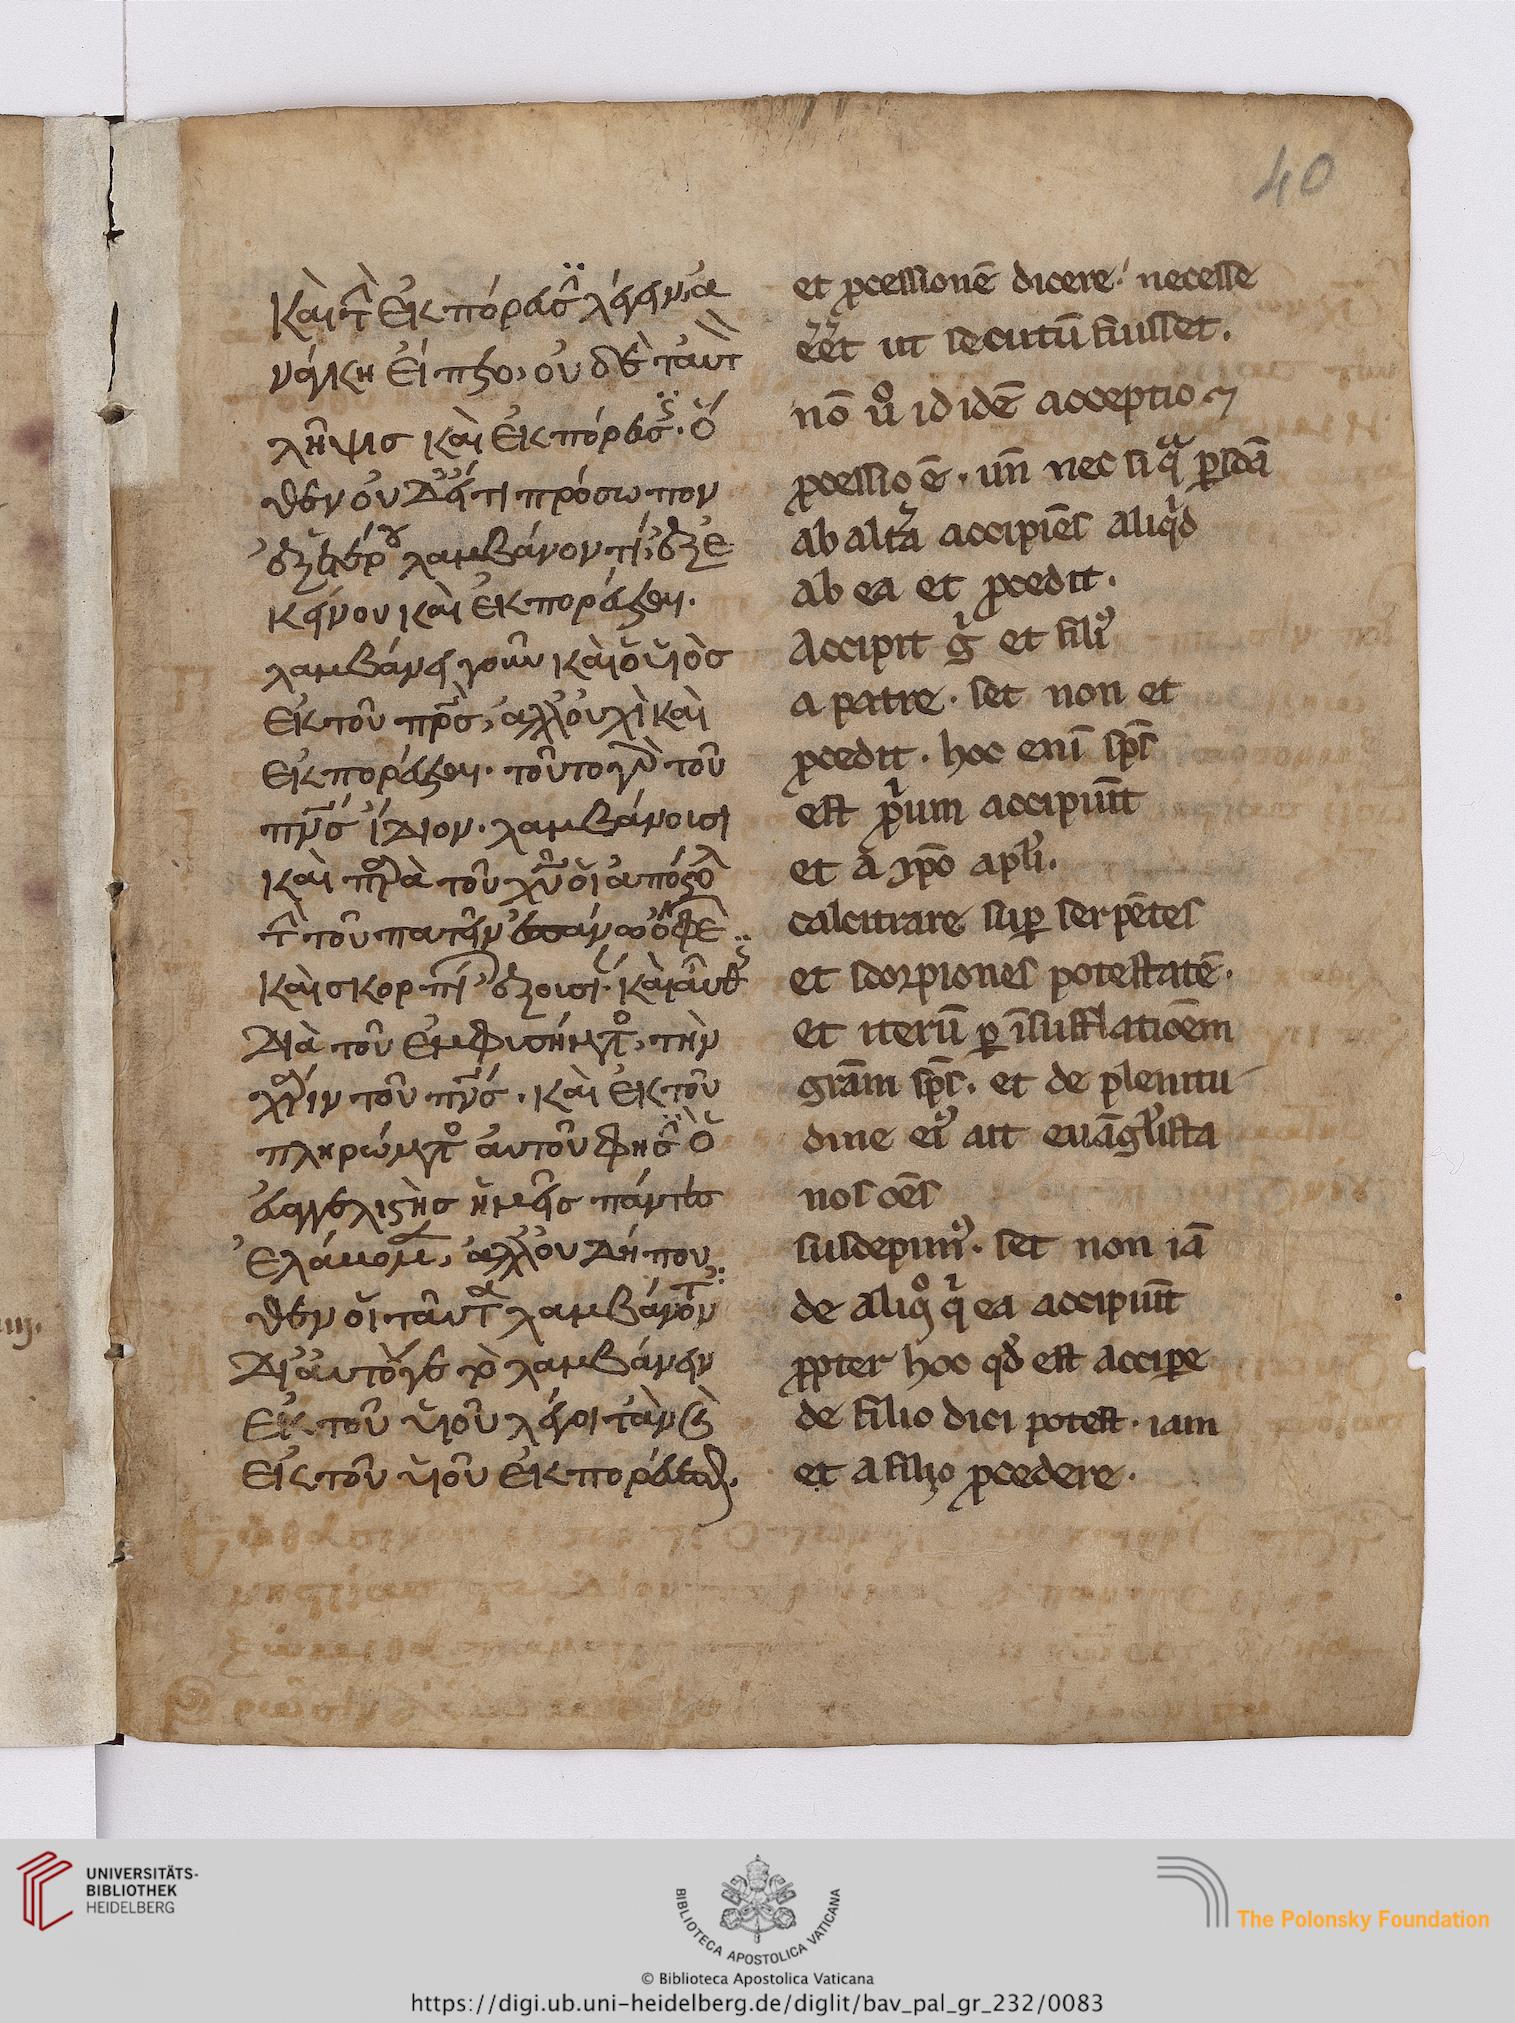 40
Καὶ τὴν ἐκπόρευσιν λέγειν, ἀ
νάγκη εἵπετο, οὐδὲ ταυτὸν
λῆψις καὶ ἐκπόρευσις. ὅ
θεν οὐδ εἴ τι πρόσωπον
ἐξ ἑτέρου λαμβάνον τί, ἐξ ἐ
κείνου καὶ ἐκπορεύεται.
λαμβάνει γοῦν καὶ ὁ υἱὸς
ἐκ τοῦ πρσ, ἀλλ οὐχὶ καὶ
ἐκπορεύεται. τοῦτο γὰρ τοῦ
πνσ ἴδιον. λαμβάνουσι
καὶ παρὰ τοῦ χυ οἱ ἀπόστολοι
τὴν τοῦ πατεῖν ἐπάνω ὄφε
καὶ σκορπί ἐξουσί. καὶ αὖθις
διὰ τοῦ ἐμφυσήματος, τὴν
χάριν τοῦ πνσ. καὶ ἐκ τοῦ
πληρώματος αὐτοῦ φησὶν ὁ
εὐαγγελιστὴς ἡμεῖς πάντες
ἐλάβομεν, ἀλλ οὐ δή που
θεν οἱ ταῦτα λαμβάνοντες
δι αὐτό γε τὸ λαμβάνειν
ἐκ τοῦ υἱοῦ λέγοιτ ἂν καὶ
ἐκ τοῦ υἱοῦ ἐκπορεύεσθαι.
et ꝓcessionē dicere necesse
eēt ut secutū fuisset.
nō u͛o id idē acceptio ⁊
ꝓcessio ē. un̄ nec si qͣ ꝑsōā
ab altͣa accipiēs aliqͥd
ab ea et ꝓcedit.
Accipit gͥ et filiꝰ
a patre. set non et
ꝓcedit. hoc enī sp̄s
est pͥum accipiūt
et a xp̄o apl̄i.
calcitrare suꝑ serpētes
et scorpiones potestatē.
et iterū ꝑ īsufflatiōem
grām sp̄s. et de plenitu
dine eiꝰ ait euāgl̄ista
nos oēs
suscepimꝰ. set non iā
de aliqͦ qͥ ea accipiūt
ꝓpter hoc qd̄ est acciꝑe
de filio dici potest. iam
et a filio ꝓcedere.
UNIVERSITÄTS-
BIBLIOTHEK
HEIDELBERG
BIBLIOTECA APOSTOLICA VATICANA
The Polonsky Foundation
© Biblioteca Apostolica Vaticana
https://digi.ub.uni-heidelberg.de/diglit/bav_pal_gr_232/0083